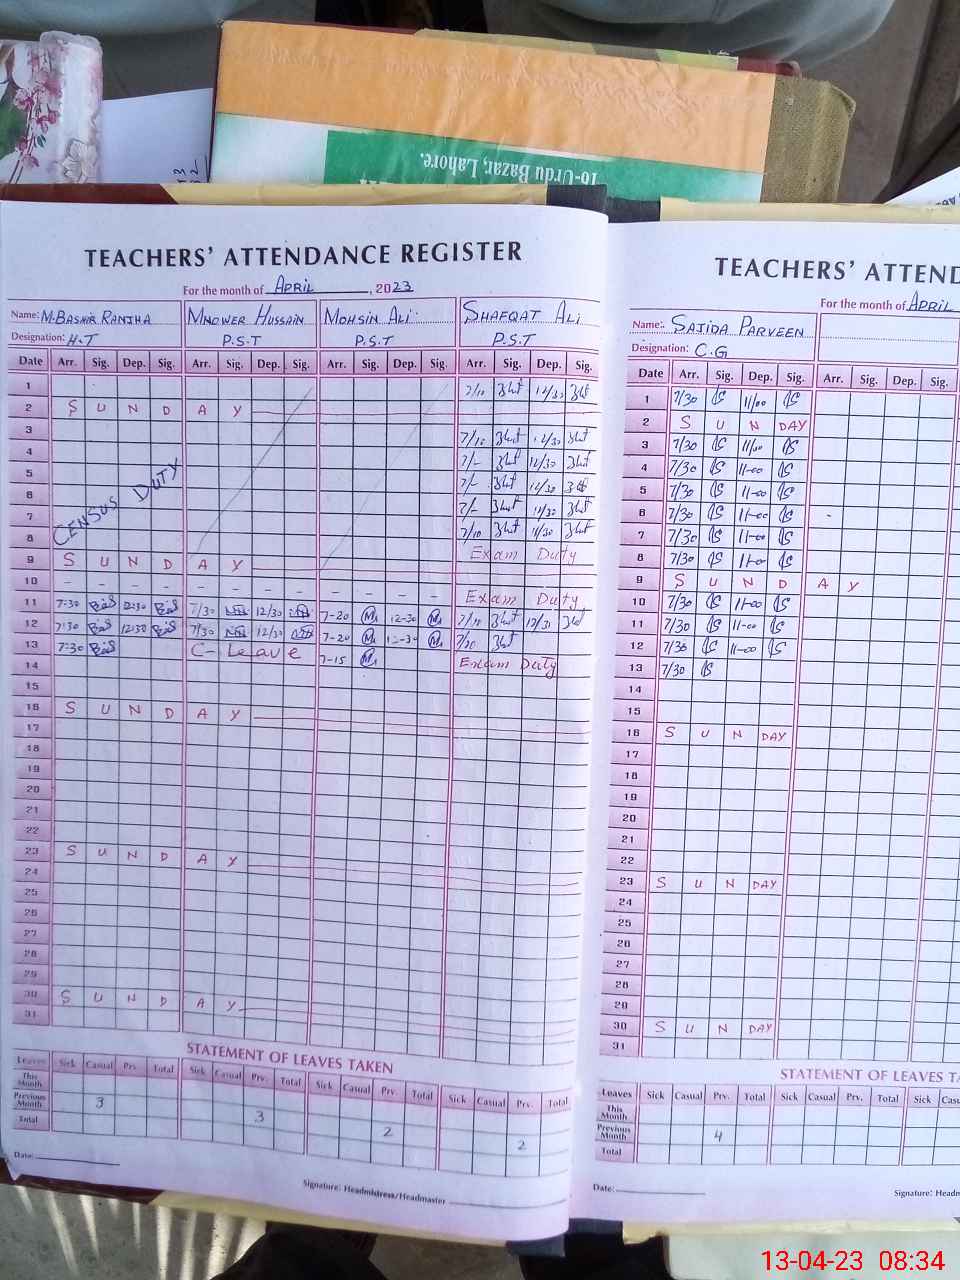 16-Urdu Bazar, Lahore.
TEACHERS' ATTENDANCE REGISTER
For the month of APRIL, 2023
Name: M.BASHIR RANJHA MNOWER HUSSAIN MOHSIN ALI SHAFQAT ALI
Designation: H.T P.S.T P.S.T P.S.T
Date Arr. Sig. Dep. Sig. Arr. Sig. Dep. Sig. Arr. Sig. Dep. Sig. Arr. Sig. Dep. Sig.
1 7/10 12/30
2 S U N D A Y
3 7/10 12/30
4 7/- 12/30
5 7/- 12/30
6 7/- 12/30
7 7/10 11/30
CENSUS DUTY
8 Exam Duty
9 S U N D A Y
10 - - - - - - - - - - - - Exam Duty
11 7-30 12:30 7/30 12/30 7-20 12-30 7/10 12/30
12 7:30 12:30 7/30 12/30 7-20 12-30 7/10
13 7:30 C- Leave 7-15 Exam Duty
14
15
16 S U N D A Y
17
18
19
20
21
22
23 S U N D A Y
24
25
26
27
28
29
30 S U N D A Y
31
STATEMENT OF LEAVES TAKEN
Leaves Sick Casual Prv. Total Sick Casual Prv. Total Sick Casual Prv. Total Sick Casual Prv. Total
This Month
Previous Month 3 3 2 2
Total
Date:
Signature: Headmistress/Headmaster
TEACHERS' ATTEND
For the month of APRIL
Name: SAJIDA PARVEEN
Designation: C.G
Date Arr. Sig. Dep. Sig. Arr. Sig. Dep. Sig.
1 7/30 11/00
2 S U N DAY
3 7/30 11/00
4 7/30 11-00
5 7/30 11-00
6 7/30 11-00
7 7/30 11-00
8 7/30 11-00
9 S U N D A Y
10 7/30 11-00
11 7/30 11-00
12 7/30 11-00
13 7/30
14
15
16 S U N DAY
17
18
19
20
21
22
23 S U N DAY
24
25
26
27
28
29
30 S U N DAY
31
STATEMENT OF LEAVES TA
Leaves Sick Casual Prv. Total Sick Casu
This Month
Previous Month 4
Total
Date:
Signature: Headm
13-04-23 08:34